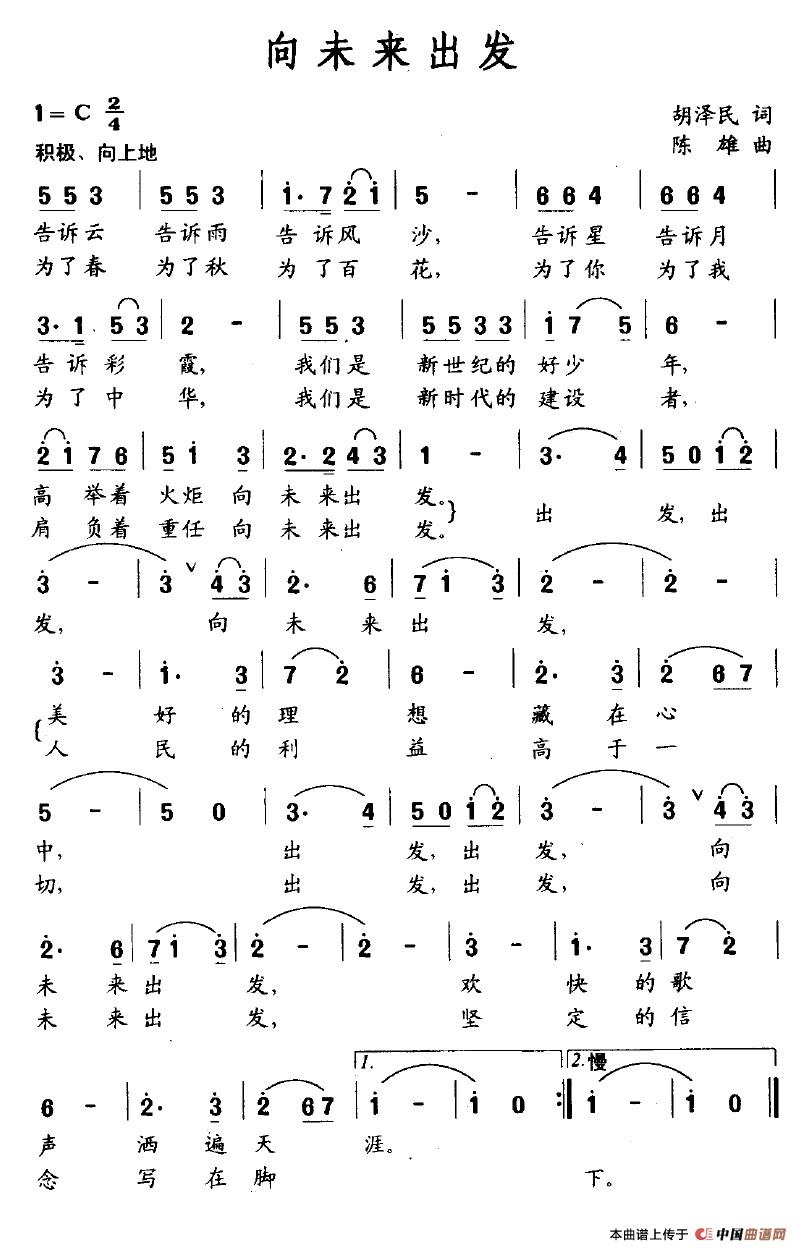 向未来出发
1=C 2/4
胡泽民 词
积极、向上地
陈 雄 曲
5 5 3 | 5 5 3 | i· 7 2 i | 5 - | 6 6 4 | 6 6 4 |
告诉云 告诉雨 告诉风 沙, 告诉星 告诉月
为了春 为了秋 为了百 花, 为了你 为了我
3· 1 5 3 | 2 - | 5 5 3 | 5 5 3 3 | i 7 5 | 6 - |
告诉彩 霞, 我们是 新世纪的 好少 年,
为了中 华, 我们是 新时代的 建设 者,
2 i 7 6 | 5 i 3 | 2· 2 4 3 | 1 - | 3· 4 | 5 0 i 2 |
高 举着 火炬 向 未来出 发。} 出 发, 出
肩 负着 重任 向 未来出 发。
3 - | 3 ∨ 4 3 | 2· 6 | 7 i 3 | 2 - | 2 - |
发, 向 未 来 出 发,
3 - | i· 3 | 7 2 | 6 - | 2· 3 | 2 6 7 |
{美 好 的 理 想 藏 在 心
人 民 的 利 益 高 于 一
5 - | 5 0 | 3· 4 | 5 0 i 2 | 3 - | 3 ∨ 4 3 |
中, 出 发, 出 发, 向
切, 出 发, 出 发, 向
2· 6 | 7 i 3 | 2 - | 2 - | 3 - | i· 3 | 7 2 |
未 来 出 发, 欢 快 的 歌
未 来 出 发, 坚 定 的 信
1. 2.慢
6 - | 2· 3 | 2 6 7 | i - | i 0 :‖ i - | i 0 ‖
声 洒 遍 天 涯。
念 写 在 脚 下。
本曲谱上传于 中国曲谱网